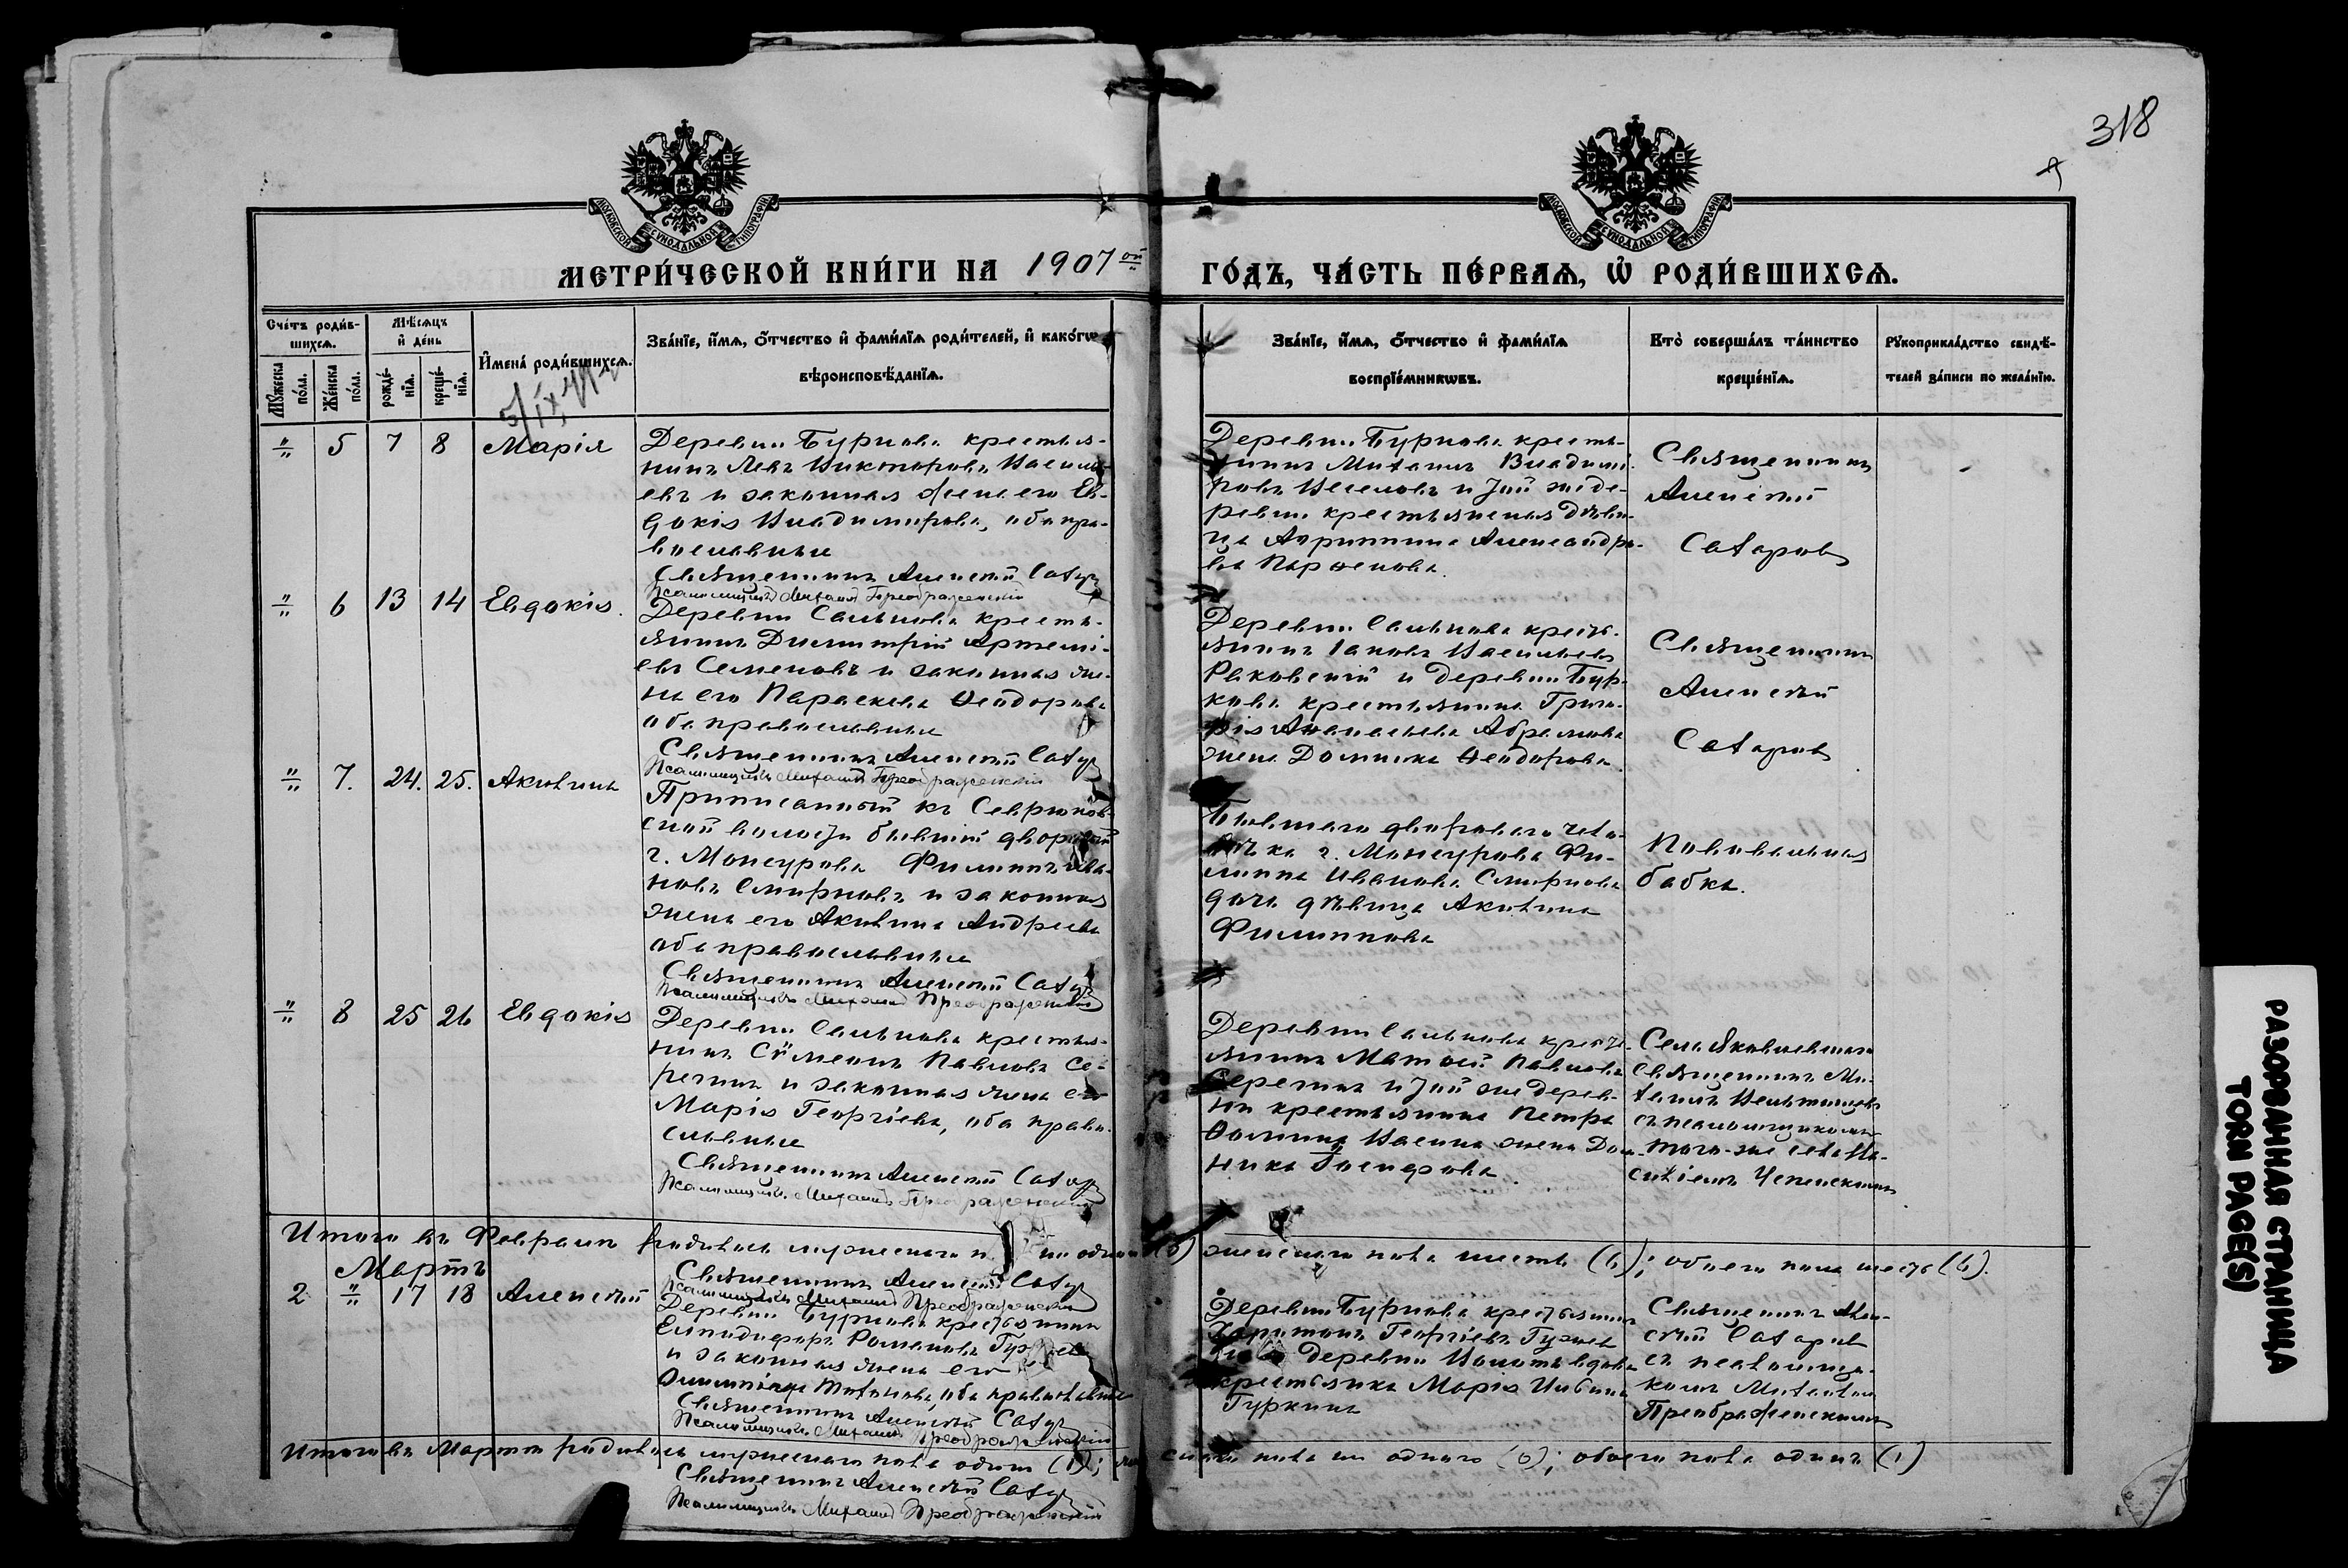 318
МОСКОВСКОЙ СУНОДАЛЬНОЙ ТИПОГРАФІИ
МОСКОВСКОЙ СУНОДАЛЬНОЙ ТИПОГРАФІИ
МЕТРИ́ЧЕСКОЙ КНИ́ГИ НА 1907 ой
ГО́ДЪ, ЧА́СТЬ ПЕ́РВАѦ, Ѡ҆ РОДИ́ВШИХСѦ.
Сче́тъ роди́в-
шихсѧ.
Мѣ́сѧцъ
и҆ де́нь
И҆мена̀ роди́вшихсѧ.
Зва́нїе, и҆́мѧ, о҆́тчество и҆ фами́лїѧ роди́телей, и҆ како́гѡ
вѣроисповѣ́данїѧ.
Мꙋ́жеска
по́ла.
Же́нска
по́ла.
рожде́-
нїѧ.
креще́-
нїѧ.
Зва́нїе, и҆́мѧ, о҆́тчество и҆ фами́лїѧ
воспрїе́мникѡвъ.
Кто̀ соверша́лъ та́инство
креще́нїѧ.
Рꙋкоприкла́дство свидѣ́-
телей за́писи по жела́нїю.
" 5 7 8 Марія
Деревни Бурнова крестья-
нинъ Левъ Викторовъ Василь-
евъ и законная жена его Ев-
докія Владимирова, оба пра-
вославные
Священникъ Алексѣй Сахар
Псаломщикъ Михаилъ Преображенскій
Деревни Бурнова кресть-
янинъ Михаилъ Владимі-
ровъ и той же де-
ревни крестьянская дѣви-
ца Агриппина Александро-
ва
Священникъ
Алексѣй
Сахаровъ
" 6 13 14 Евдокія.
Деревни Салькова кресть-
янинъ Димитрій Артемі-
евъ Семеновъ и законная же-
на его Параскева Ѳеодорова
оба православные
Священникъ Алексѣй Сахар
Псаломщикъ Михаилъ Преображенскій
Деревни Салькова кресть-
янинъ Іаковъ Васильевъ
Раковскій и деревни Бур-
нова крестьянина Григо-
рія Аѳанасьева Абрамова
жена Домника Ѳеодорова
Священникъ
Алексѣй
Сахаровъ
" 7. 24. 25. Акилина
Приписанный къ Севрюков-
ской волости бывшій дворовый
г. Монсурова Филиппъ Ива-
новъ Смирновъ и законная
жена его Акилина Андреева
оба православные
Священникъ Алексѣй Сахар
Псаломщикъ Михаилъ Преображенскій
Бывшаго двороваго чело-
вѣка г. Монсурова Фи-
липпа Иванова Смирнова
дочь дѣвица Акилина
Филиппова
Повивальная
бабка.
" 8 25 26 Евдокія
Деревни Салькова крестья-
нинъ Сѵмеонъ Павловъ Се-
регинъ и законная жена его
Марія Георгіева, оба право-
славные
Священникъ Алексѣй Сахар
Псаломщикъ Михаилъ Преображенскій
Деревни Салькова кресть-
янинъ Матѳей Павловъ
Серегинъ и той же дерев-
ни крестьянина Петра
Ѳомина жена Дом-
ника Іосифова
Села Яковлевскаго
священникъ Ми-
хаилъ
съ псаломщикомъ
того-же села
Успенскимъ
Итого въ Февралѣ родилось мужескаго п. ни одного (0) женскаго пола шесть (6); обоего пола шесть (6).
Священникъ Алексѣй Сахар
Псаломщикъ Михаилъ Преображенскій
Мартъ
2 " 17 18 Алексѣй
Деревни Бурнова крестьянинъ
Елпидифоръ Романовъ
и законная жена его
Олимпіада, оба православные
Священникъ Алексѣй Сахар
Псаломщикъ Михаилъ Преображенскій
Деревни Бурнова крестьянинъ
Харитонъ Георгіевъ
деревни вдова
крестьянка Марія
Гуркина
Священникъ Алек-
сѣй Сахаровъ
съ псаломщи-
комъ Михаиломъ
Преображенскимъ
Итого въ Мартѣ родилось мужескаго пола одинъ (1); женскаго пола ни одного (0); обоего пола одинъ (1)
Священникъ Алексѣй Сахар
Псаломщикъ Михаилъ Преображенскій
РАЗОРВАННАЯ СТРАНИЦА
TORN PAGE(S)